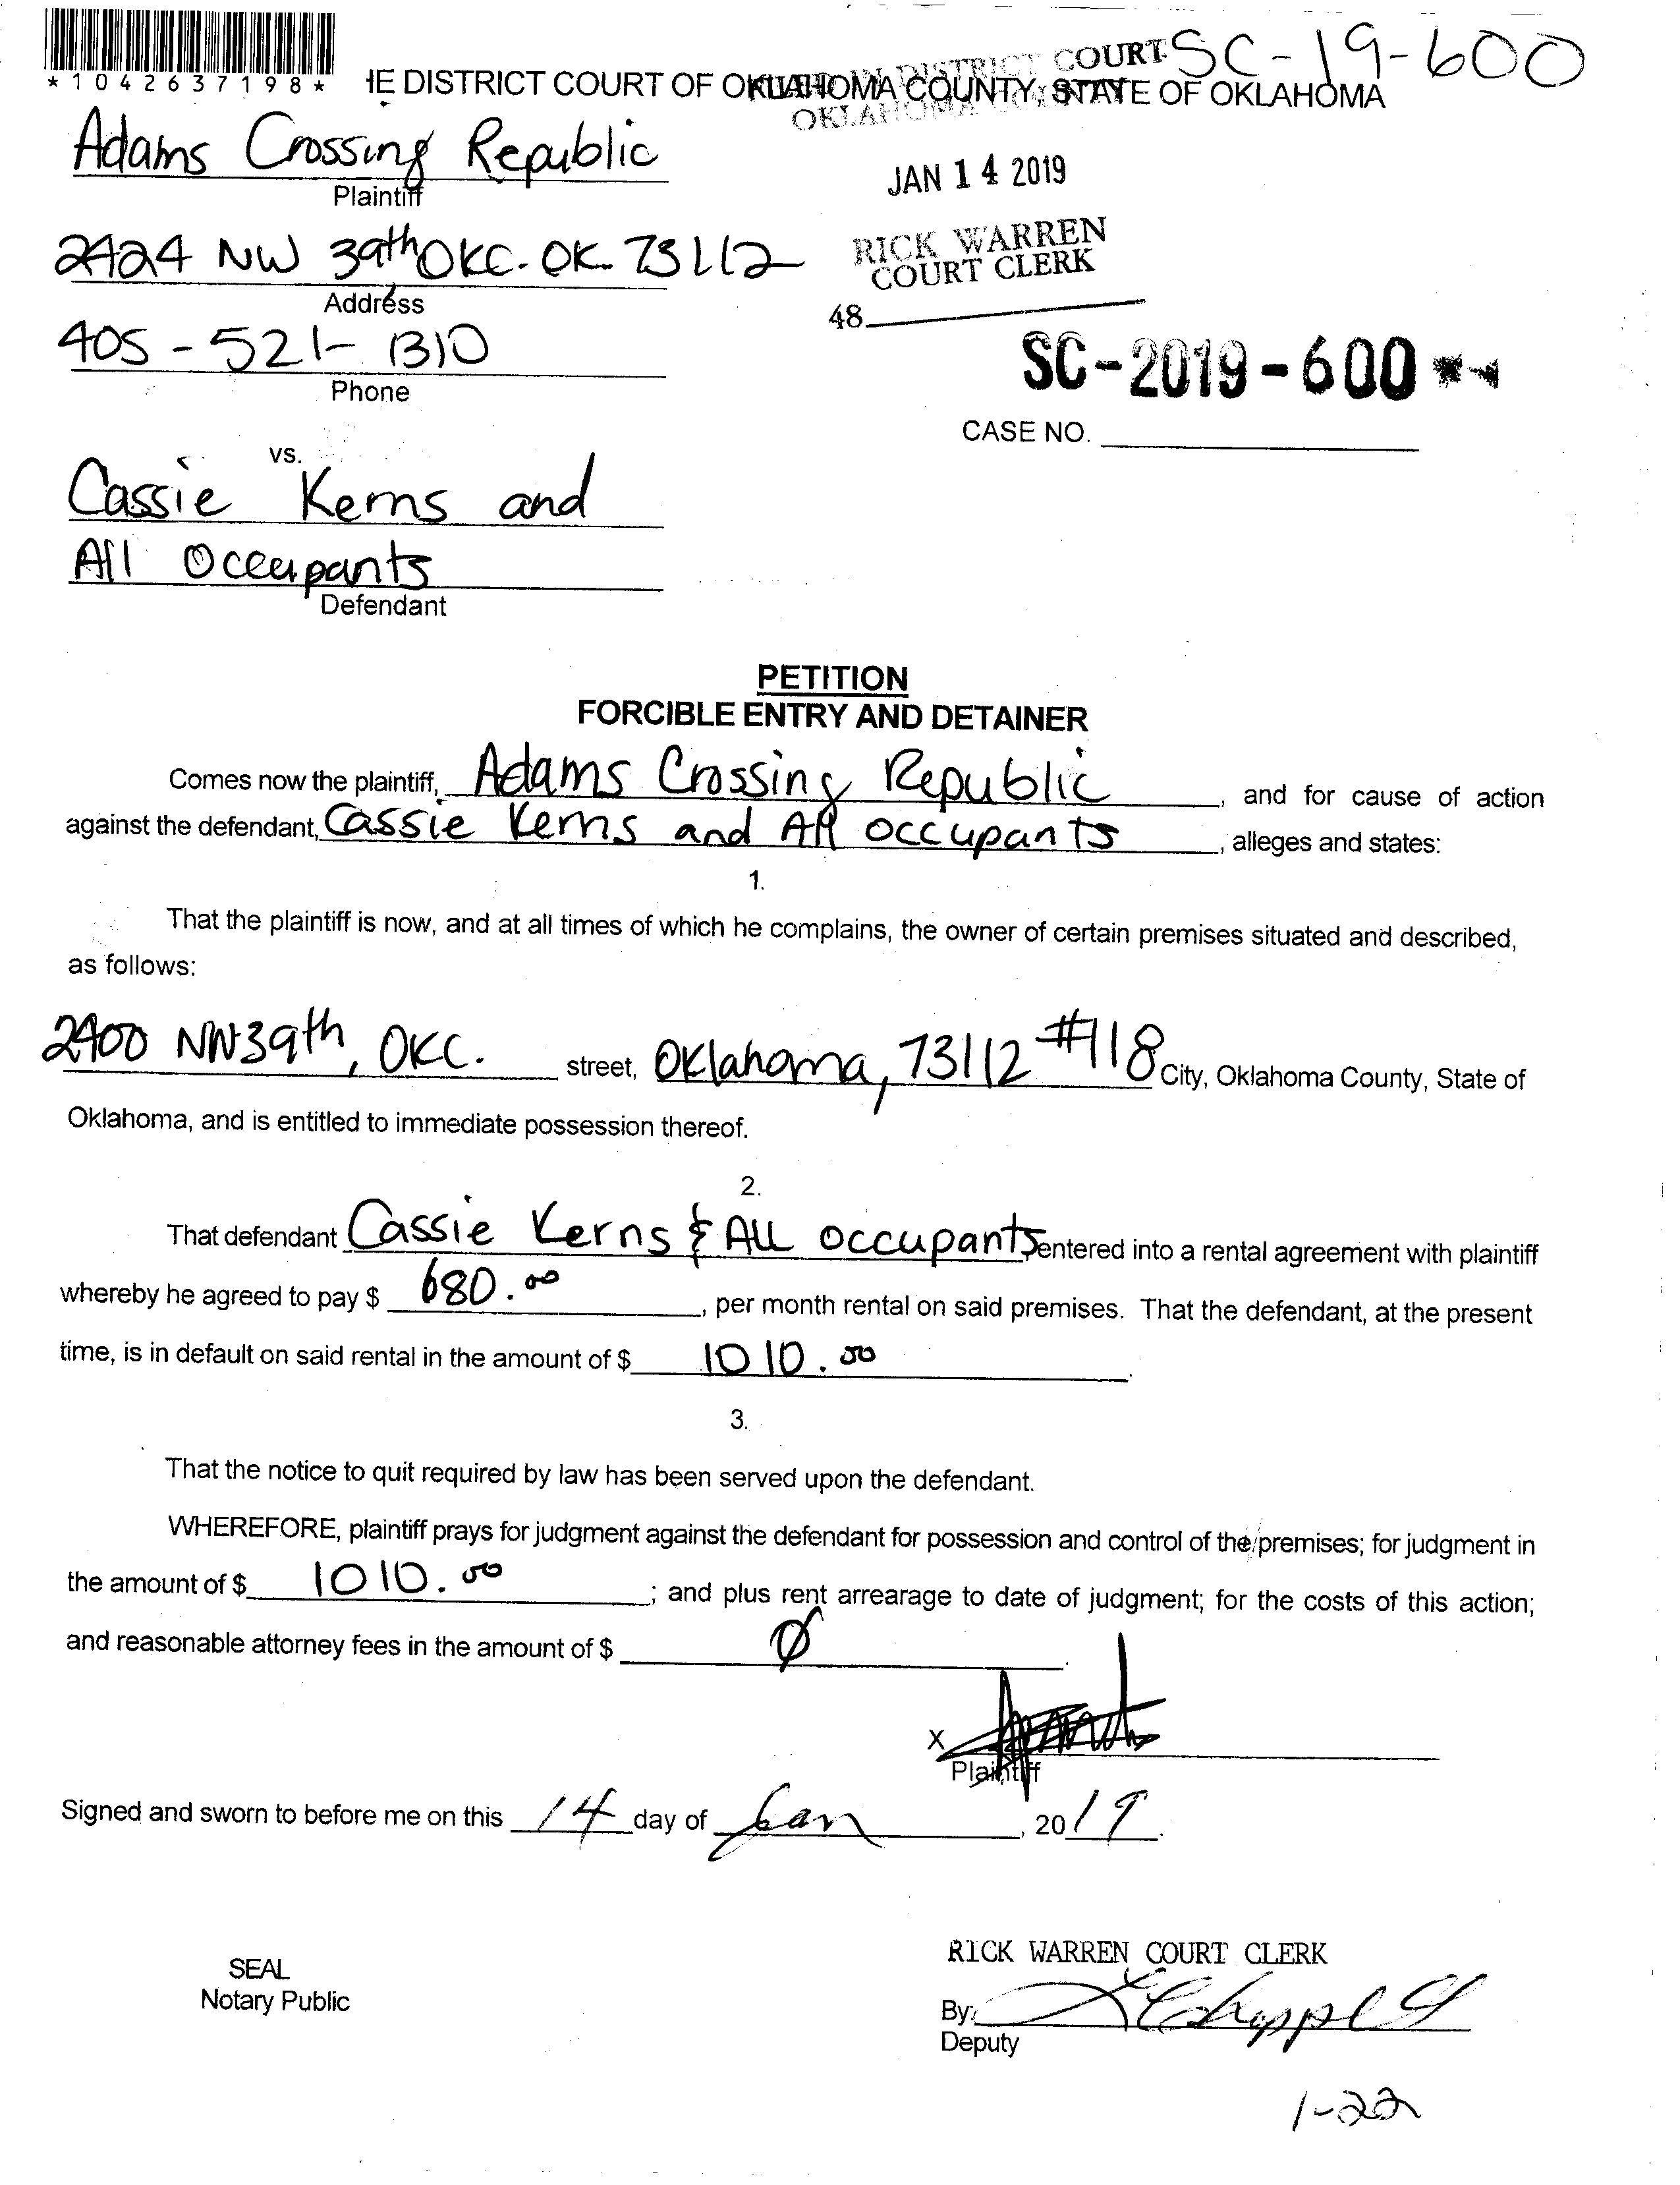 SC-19-600
*1042637198*
HE DISTRICT COURT OF OKLAHOMA COUNTY, STATE OF OKLAHOMA
DISTRICT COURT
OKLAHOMA
Adams Crossing Republic
Plaintiff
JAN 14 2019
2424 NW 39th OKC. OK. 73112
Address
RICK WARREN
COURT CLERK
48
405-521-1310
Phone
SC-2019-600
CASE NO.
vs.
Cassie Kerns and
All Occupants
Defendant
PETITION
FORCIBLE ENTRY AND DETAINER
Comes now the plaintiff, Adams Crossing Republic, and for cause of action
against the defendant, Cassie Kerns and All occupants, alleges and states:
1.
That the plaintiff is now, and at all times of which he complains, the owner of certain premises situated and described,
as follows:
2400 NW 39th, OKC. street, Oklahoma, 73112 #118 City, Oklahoma County, State of
Oklahoma, and is entitled to immediate possession thereof.
2.
That defendant Cassie Kerns & All occupants entered into a rental agreement with plaintiff
whereby he agreed to pay $ 680.00, per month rental on said premises. That the defendant, at the present
time, is in default on said rental in the amount of $ 1010.00.
3.
That the notice to quit required by law has been served upon the defendant.
WHEREFORE, plaintiff prays for judgment against the defendant for possession and control of the premises; for judgment in
the amount of $ 1010.00; and plus rent arrearage to date of judgment; for the costs of this action;
and reasonable attorney fees in the amount of $ Ø.
X
Plaintiff
Signed and sworn to before me on this 14 day of Jan, 2019.
SEAL
Notary Public
RICK WARREN COURT CLERK
By:
Deputy
1-22